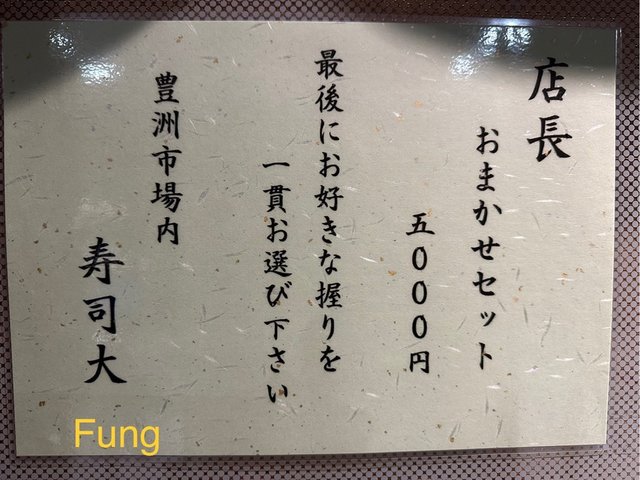 店長
おまかせセット
五000円
最後にお好きな握りを
一貫お選び下さい
豊洲市場内
寿司大
Fung